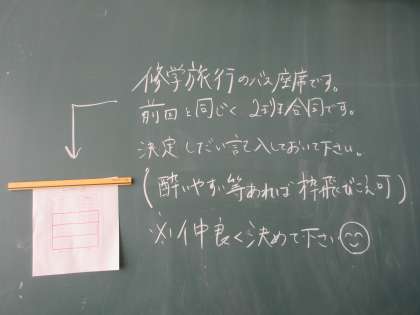 修学旅行のバス座席です。
前回と同じく2班合同です。
決定しだい記入しておいて下さい。
(酔いやすい等あれば枠飛びこえ可)
※仲良く決めて下さい